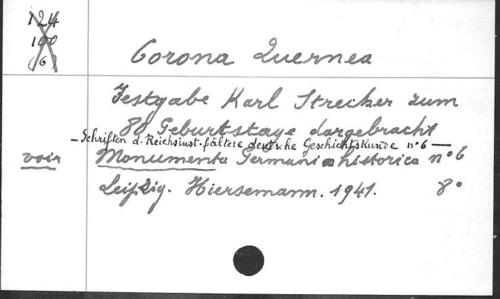 124
100
6
Corona Quernea
Festgabe Karl Strecker zum
80 Geburtstage dargebracht
- Schriften d. Reichsinst. f. ältere deutsche Geschichtskunde n° 6 -
voir Monumenta Germaniae historica n° 6
Leipzig. Hiersemann. 1941. 8°